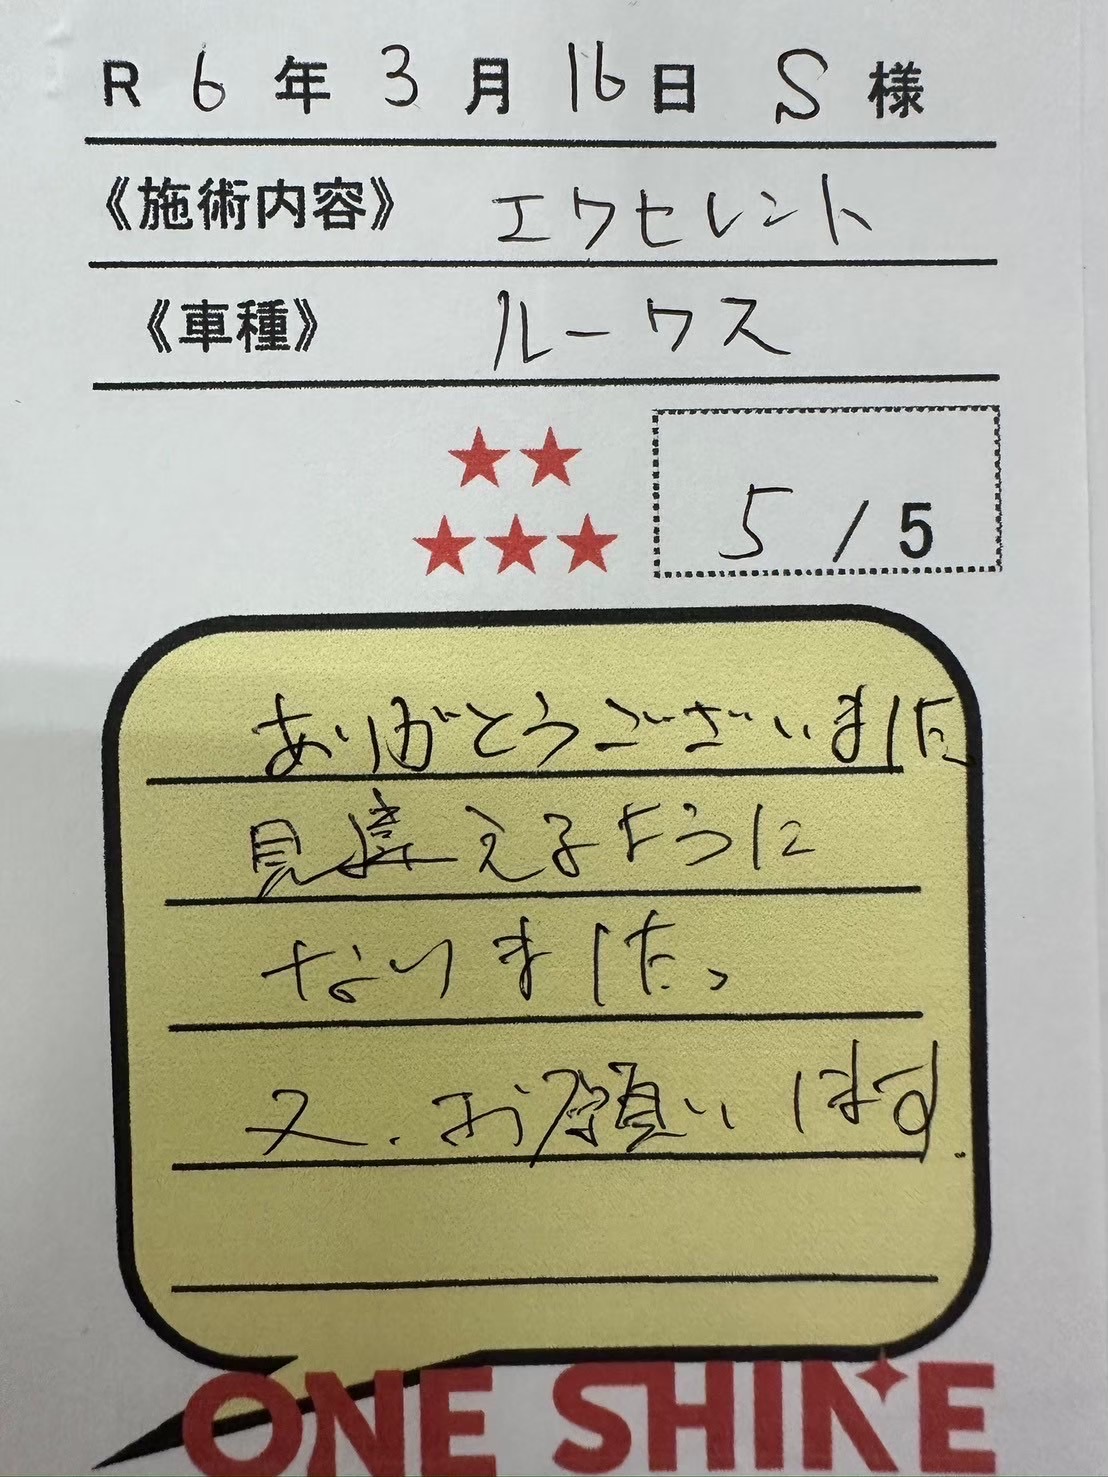 R 6 年 3 月 16 日 S 様
《施術内容》 エクセレント
《車種》 ルークス
★★
★★★ 5 / 5
ありがとうございました
見違えるように
なりました。
又、お願いします。
ONE SHINE